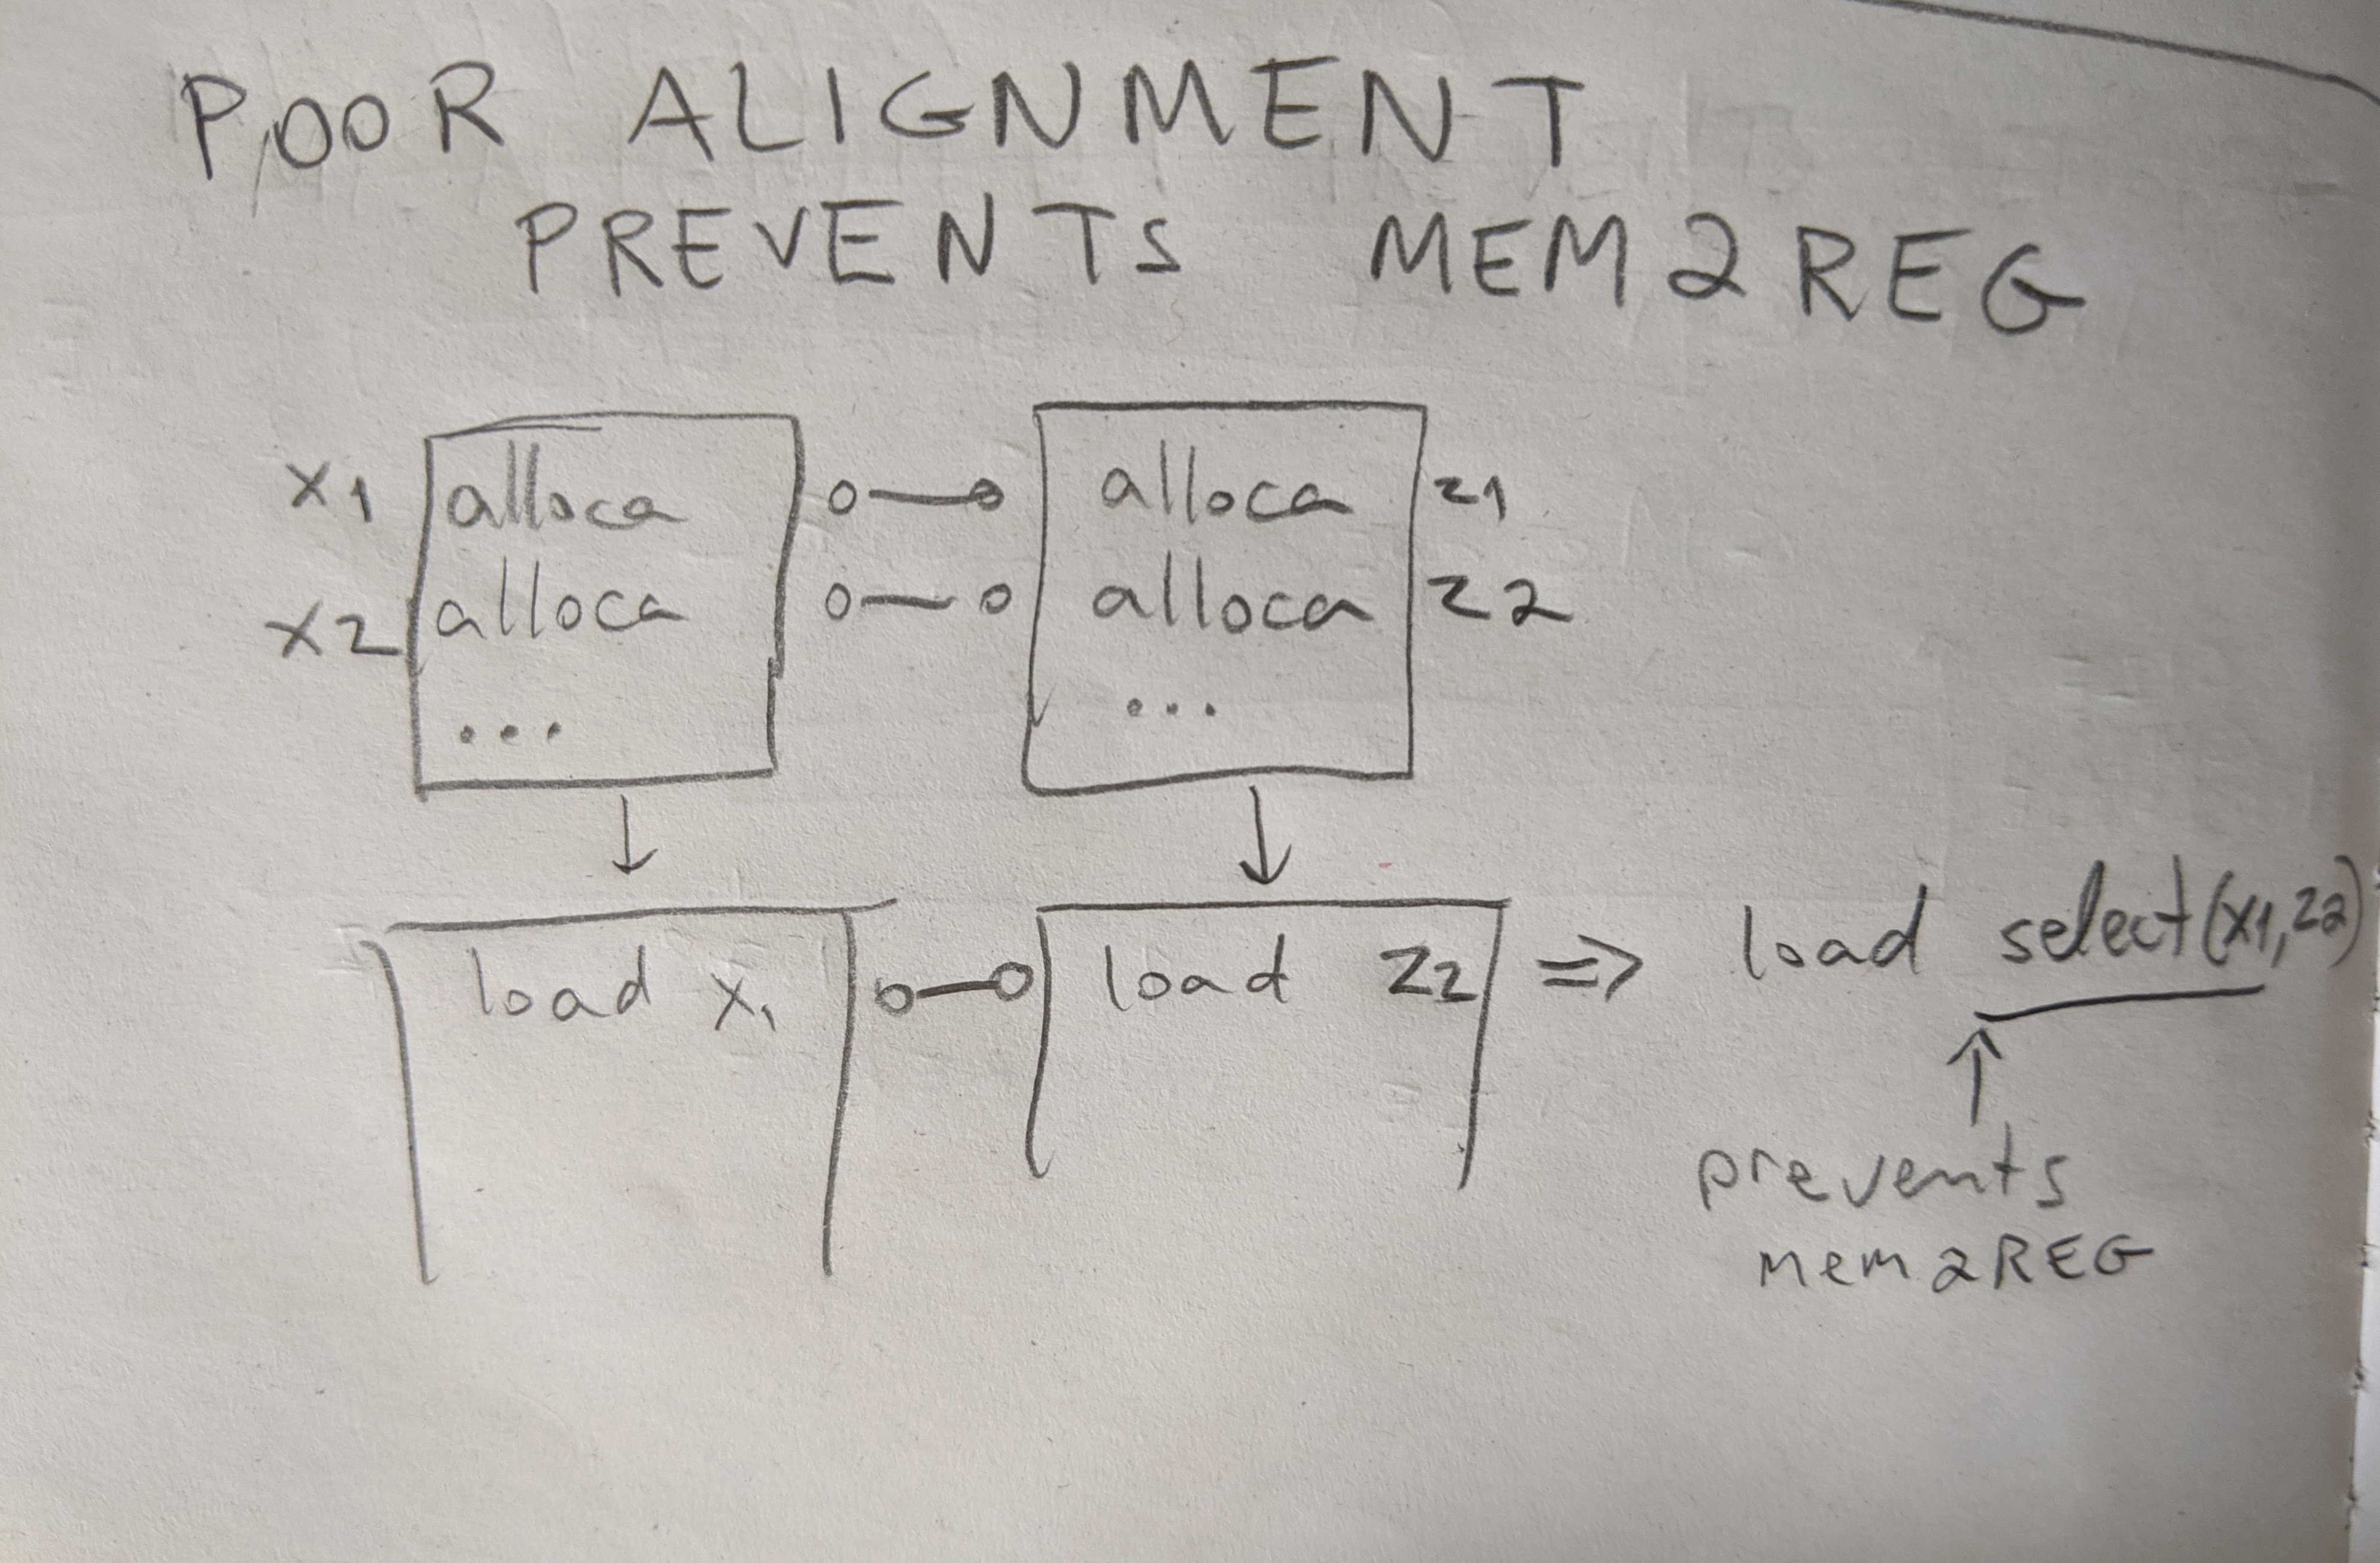 POOR ALIGNMENT
PREVENTS MEM2REG
x1 alloca alloca z1
x2 alloca alloca z2
... ...
load x1 load z2 => load select(x1,z2)
prevents
mem2REG